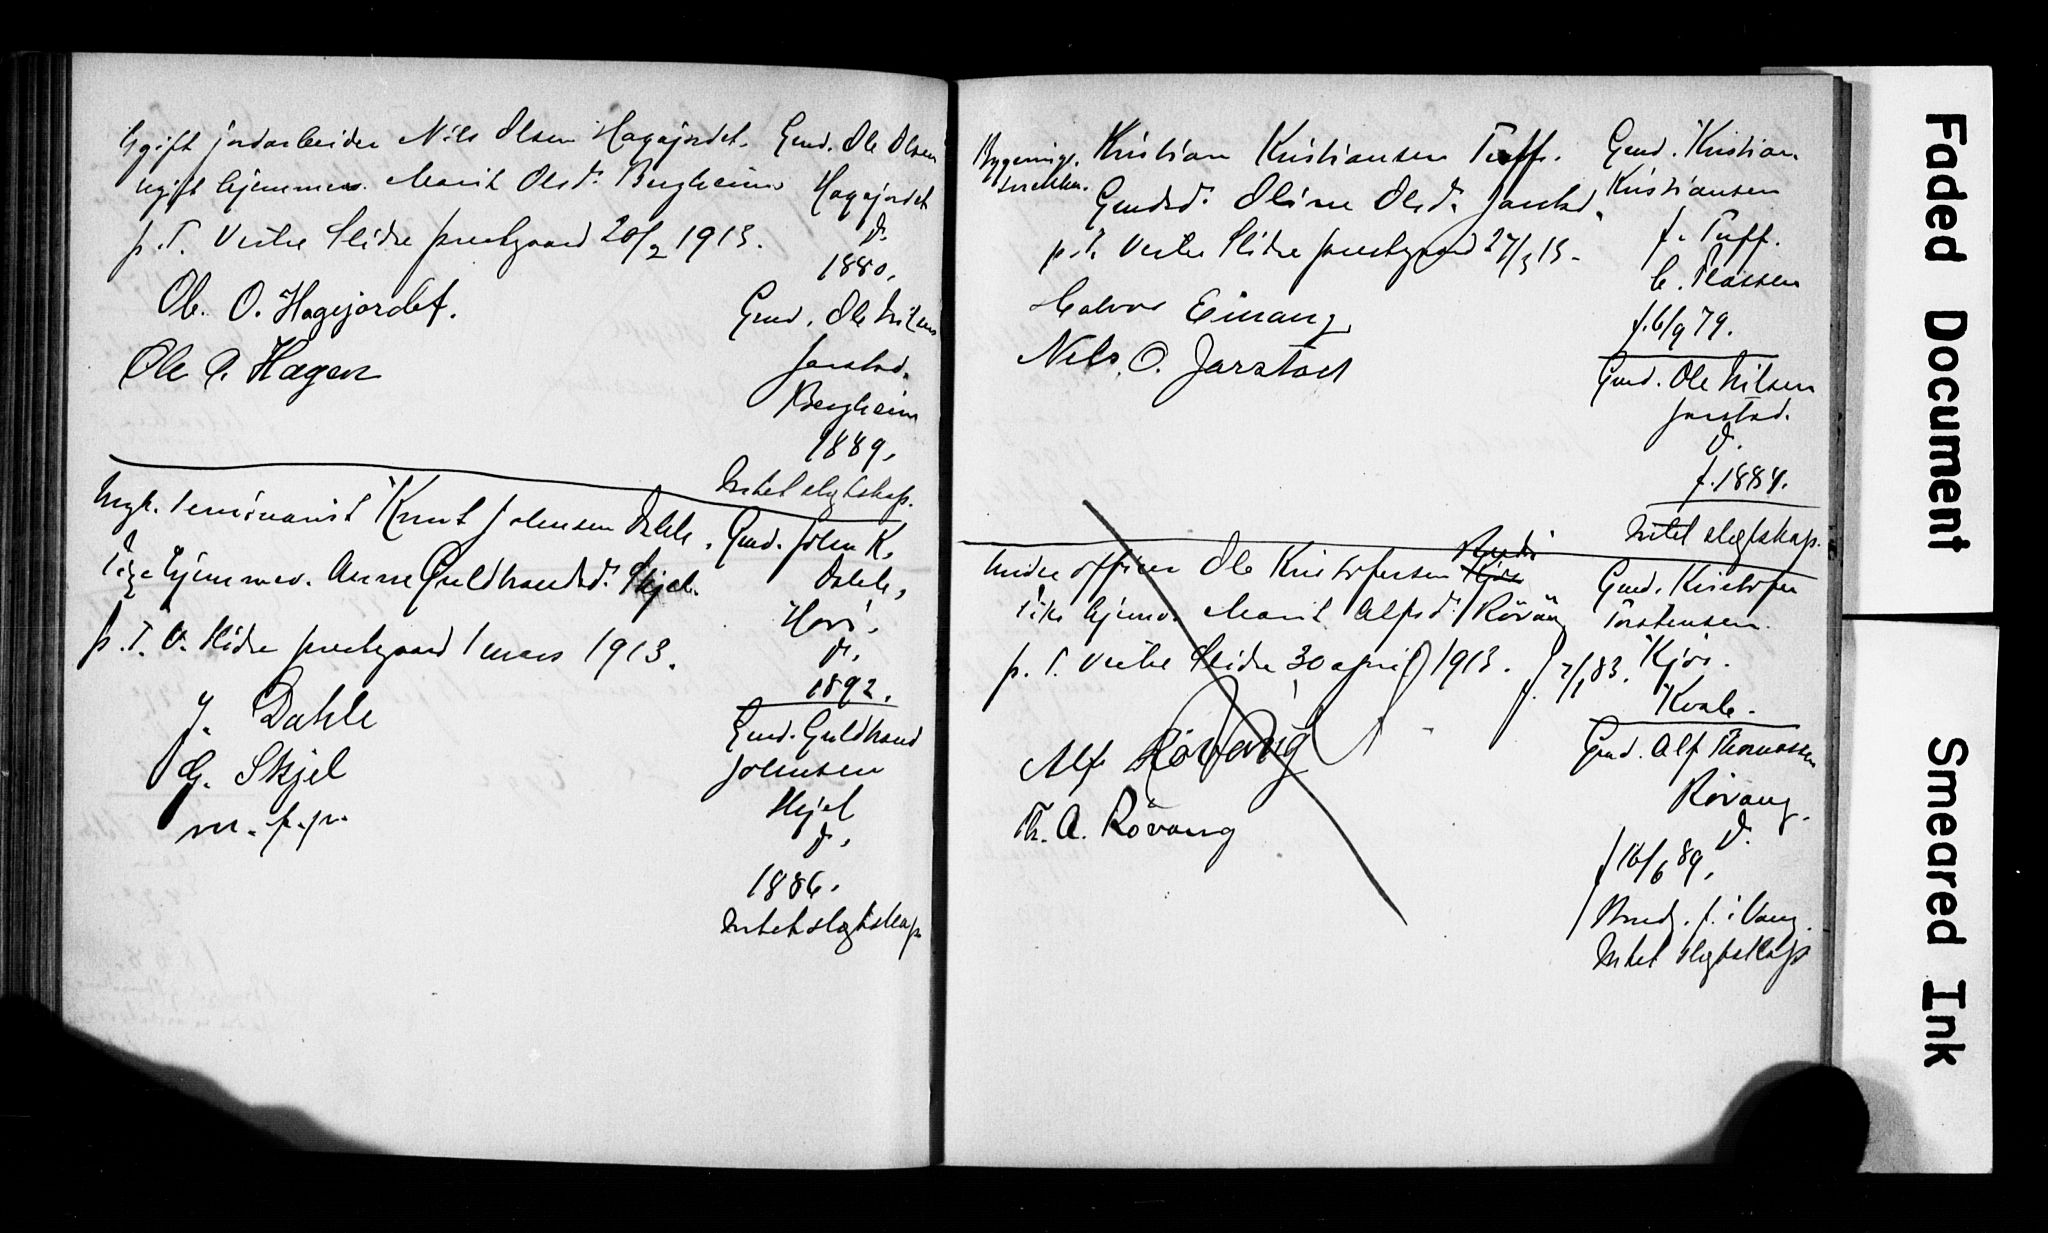 Ugift jordarbeider Nils Olsen Hagajordet.
ugift hjemmev. Marit Olsd. Bergheim
p. T. Vestre Slidre prestegaard 20/2 1913.
Ole. O. Hagejordet.
Ole O. Hagen
Gmd. Ole Olsen
Hagajordet
d.
1880.
Gmd. Ole Nilsens
Jarstad.
Bergheim
1889.
Intet slegtskap.
Ungk. seminarist Knut Johnsen Dahle.
Pige hjemmev. Anne Guldbrandsd. Skjel.
p. T. V. Slidre prestegaard 1 mars 1913.
J. Dahle
G. Skjel
m. f. p.
Gmd. John K.
Dahle,
Høri,
d.
1892.
Gmd. Guldbrand
Johnsen
Skjel
d.
1886.
Intet slegtskap
Bygnings-
snekker.
Kristian Kristiansen Tuff.
Gmdsd. Oline Olsd. Jarstad.
p. T. Vestre Slidre prestegaard 27/3 13.
Halvor Einang
Nils. O. Jarstad
Gmd. Kristian
Kristiansen
f. Tuff.
f. 6/9 79.
Gmd. Ole Nilsen
Jarstad.
d.
f. 1884.
Intet slegtskap.
Underofficer Ole Kristofersen Kjøs
Pike hjemv. Marit Alfsd. Røvang
p. T. Vestre Slidre 30 april 1913.
f. 7/1 83.
Alf Røvang
Th. A. Røvang
Gmd. Kristofer
Torstensen.
Kjøs.
Kvale.
Gmd. Alf Thomassen
Røvang.
d.
f 16/6 89.
f. i Vang.
Intet slegtskap
Faded Document
Smeared Ink